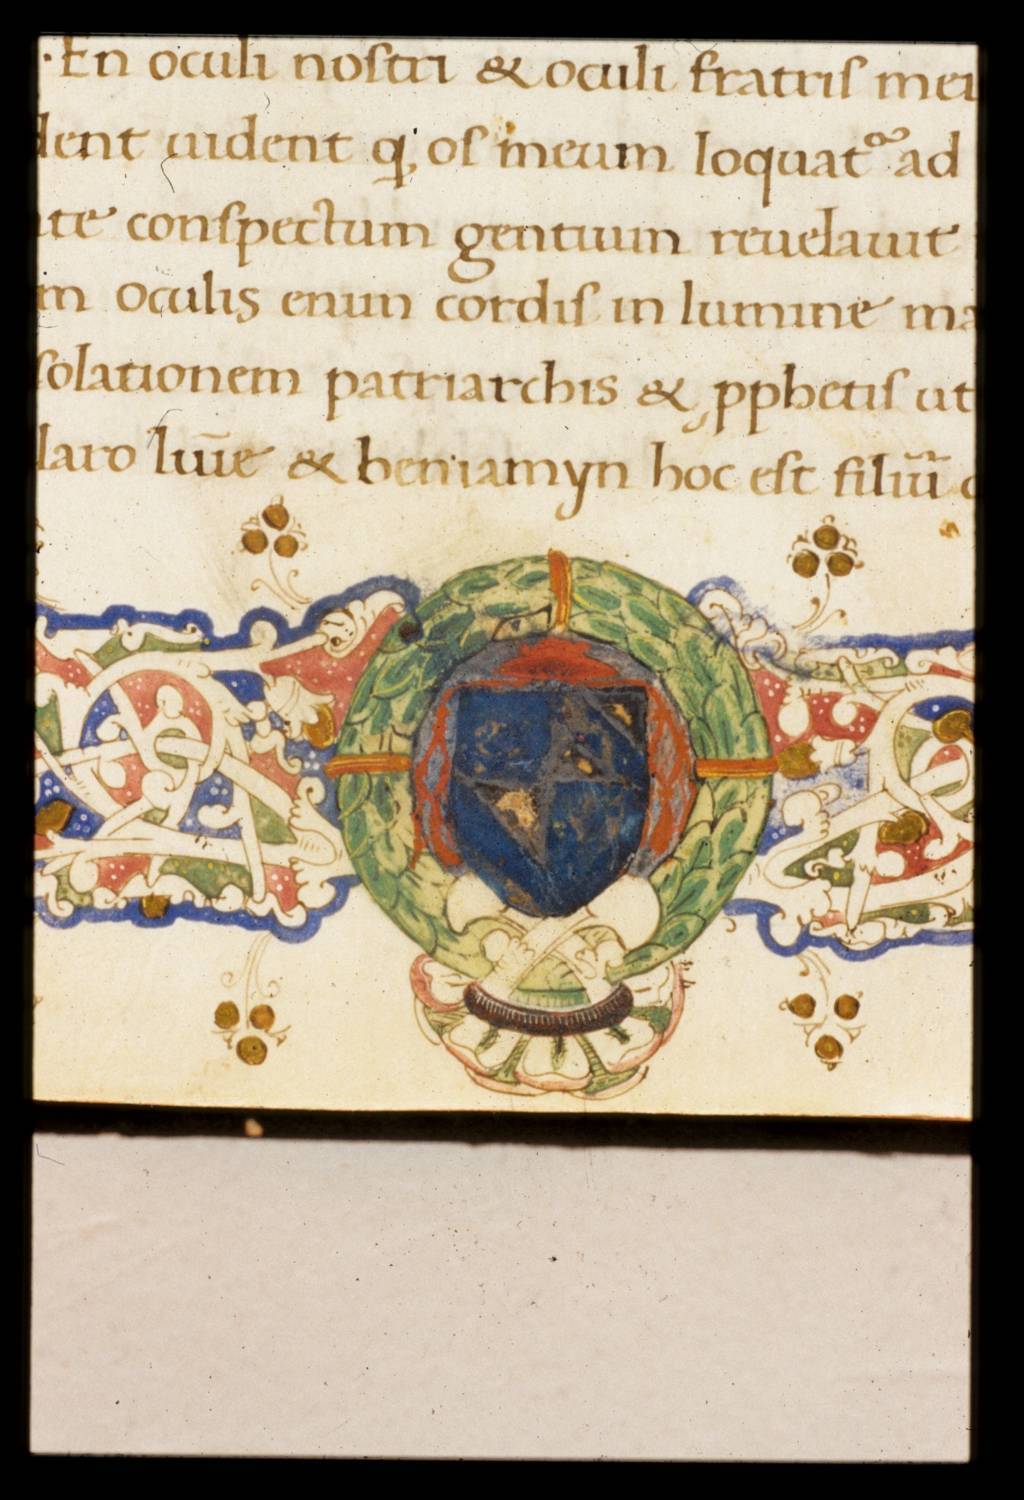 ·En oculi nostri & oculi fratris mei
dent uident q̧ os meum loquat᷑ ad
te conspectum gentium reuelauit
m oculis enim cordis in lumine ma
solationem patriarchis & pphetis ut
laro luīe & beniamyn hoc est filiū